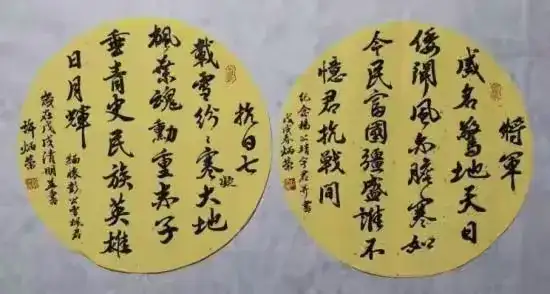 将軍
威名驚地天日
倭闻風膽寒如
今民富國强盛誰不
憶君抗戰間
纪念楊公靖宇君并書
戊戌春炳榮
抗日七
載雪紛々寒大地
楓葉魂勳重赤子
垂青史民族英雄
日月輝
緬懷彭公雪枫君
歲在戊戌清明并書
許炳榮